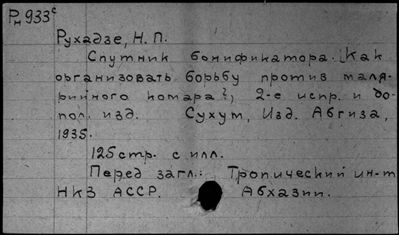 Рн933с
Рухадзе, Н. П.
Спутник бонификатора. [Как
организовать борьбу против маля-
рийного комара?], 2-е испр. и до-
пол. изд. Сухум, Изд. Абгиза,
1935.
125 стр. с илл.
Перед загл.: Тропический ин-т
НКЗ АССР. Абхазии.